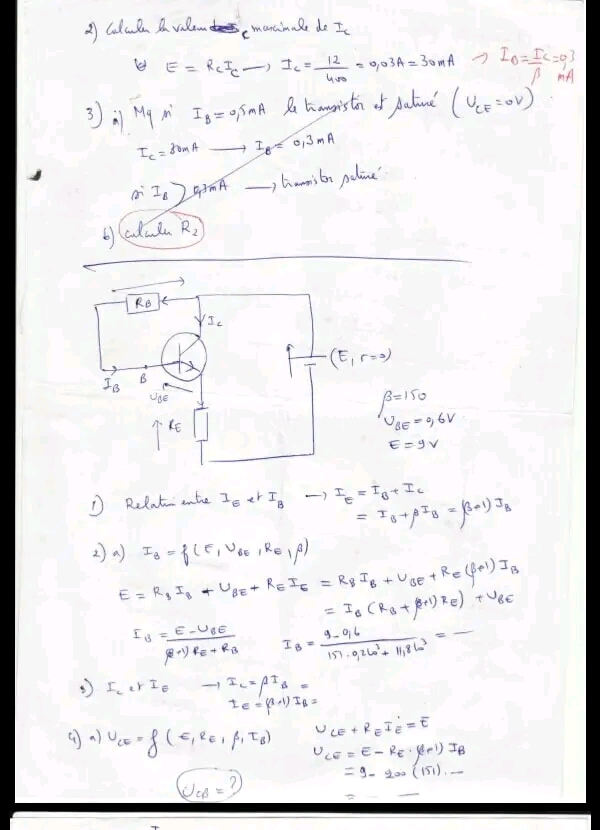 2) Calculer la valeur maximale de Ic
E = Rc Ic → Ic = 12/400 = 0,03A = 30mA → IB = Ic/β = 0,3 mA
3) a) Mq si IB = 0,5mA le transistor est saturé (UCE = 0V)
Ic = 30mA → IB = 0,3mA
si IB > 0,3mA → transistor saturé
b) calculer R2
RB
Ic
IB B
UBE
RE
(E, r=0)
β=150
UBE = 0,6V
E = 9V
1) Relation entre IE et IB → IE = IB + Ic
= IB + βIB = (β+1) IB
2) a) IB = f(E, UBE, RE, β)
E = RB IB + UBE + RE IE = RB IB + UBE + RE(β+1) IB
= IB (RB + (β+1) RE) + UBE
IB = E - UBE / (β+1) RE + RB
IB = 9-0,6 / 151.0,2.10³ + 11,8.10³ =
3) Ic et IE → Ic = βIB =
IE = (β+1) IB =
4) a) UCE = f (E, RE, β, IB)
UCE + RE IE = E
UCE = E - RE. (β+1) IB
= 9 - 200 (151). —
= —
UCB = ?